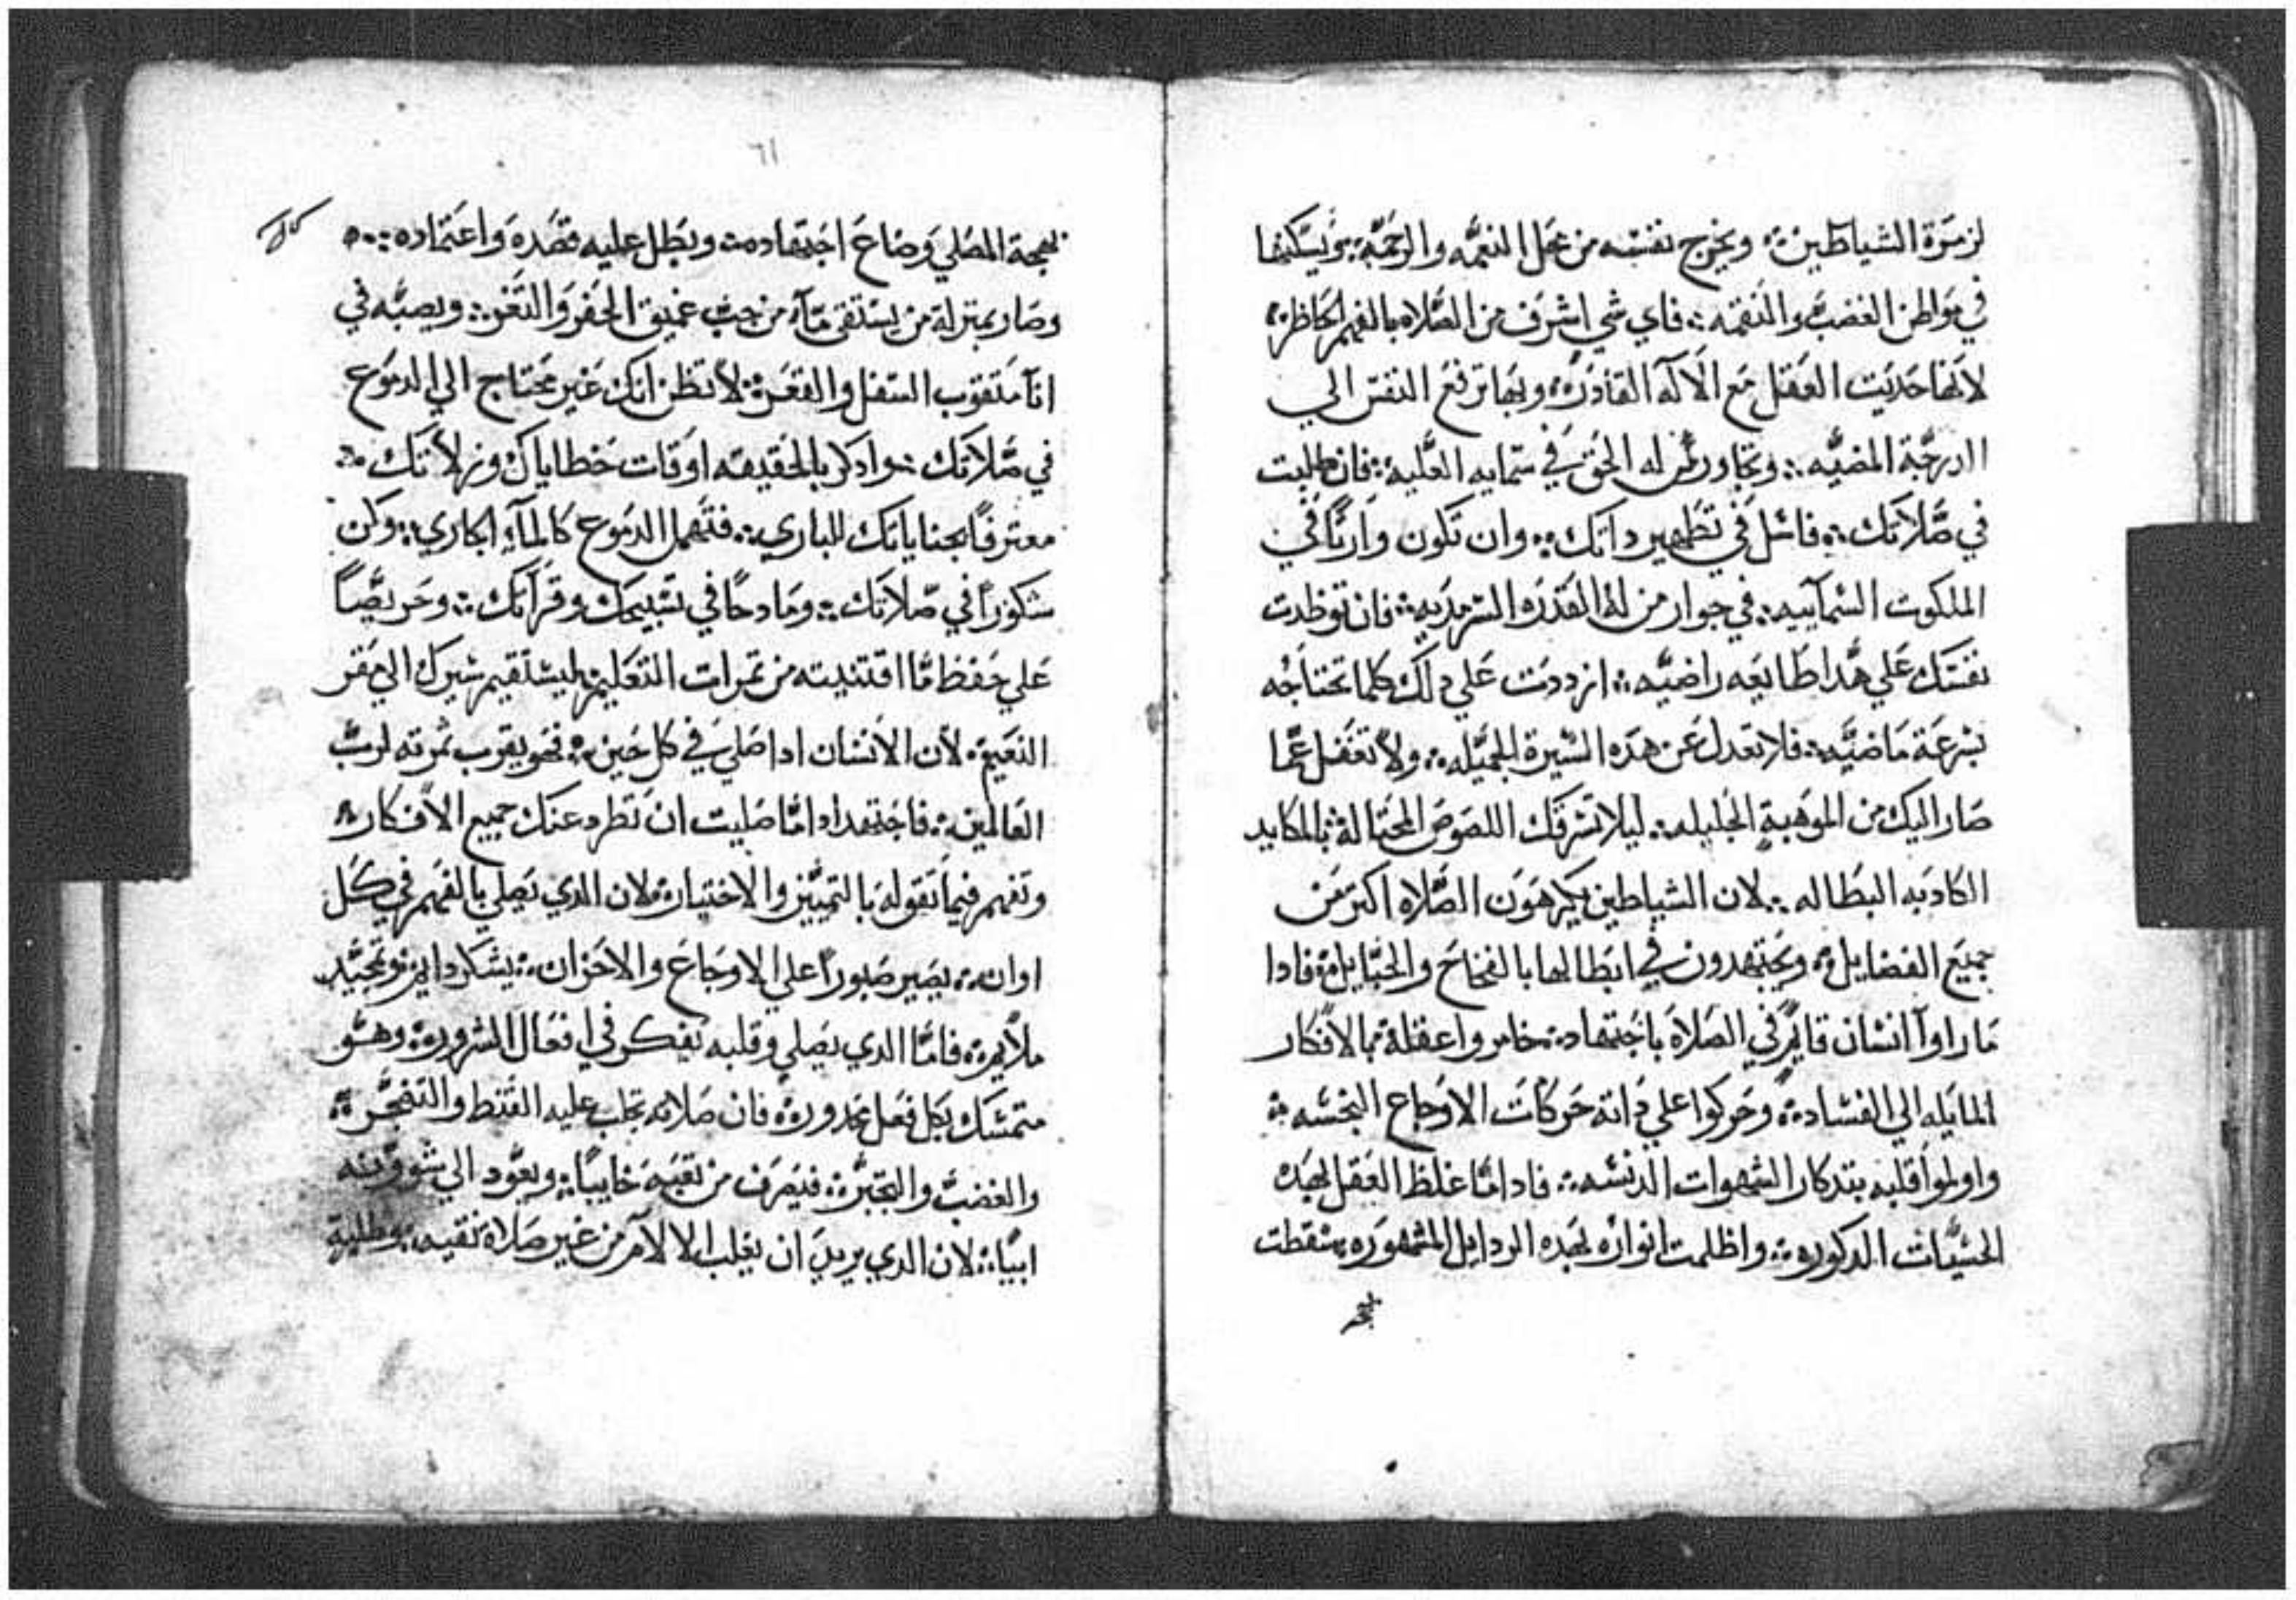 لزمرة الشياطين ܀ ويخرج نفسه من محل النعمه والرحمة ܀ ويسكنها
في مواطن الغضب والنقمه ܀ فاي شي اشرف من الصلاه بالفهم الحاظره
لانها حديت العقل مع الآله القادره ܀ وبها ترفع النفس الي
الدرجة المضيه ܀ وتجاور من له الحق في سمايه العليه ܀ فان طلبت
في صلاتك ܀ فاسل في تطهير داتك ܀ وان تكون وارتا في
الملكوت السمآييه ܀ في جوار من له القدره السرمديه ܀ فان توظدت
نفسك علي هدا طايعه راضيه ܀ ازددت علي دلك كلما تحتاجه
بسرعة ماضيه ܀ فلا تعدل عن هده السيرة الجميله ܀ ولا تغفل عما
صار اليك من الموهبة الجليله ܀ ليلا تسرقك اللصوص المحتالة ܀ بالمكايد
الكادبه البطاله ܀ لان الشياطين يكرهون الصلاه اكتر من
جميع الفضايل ܀ ويجتهدون في ابطالها بالفخاخ والحبايل ܀ فادا
ما راوا انسان قايم في الصلاة باجتهاد ܀ خامروا عقله بالافكار
المايله الي الفساد ܀ وحركوا علي داته حركات الاوجاع النجسه ܀
واولموا قلبه بتدكار الشهوات الدنسه ܀ فادا ما غلظ العقل بهده
الحسيات الدكوره ܀ واظلمت انواره بهده الردايل المشهوره ܀ سقطت
بهجة
٦١
بهجة المصلي وضاع اجتهاده ܀ وبطل عليه قصده واعتماده ܀
وصار بمنزلة من يستقي مآء من جب عميق الحفر والتغر ܀ ويصبه في
انآ متقوب السفل والقعر ܀ لا تظن انك غير محتاج الي الدموع
في صلاتك ܀ وادكر بالحقيقه اوقات خطاياك وزلاتك ܀
معترفًا بجناياتك للباري ܀ فتهمل الدموع كالمآء الجاري ܀ وكن
شكورًا في صلاتك ܀ ومادحًا في تسبيحك وقرآتك ܀ وحريصًا
علي حفظ ما اقتنيته من تمرات التعليم ܀ ليستقيم سيرك الي مقر
النعيم ܀ لان الانسان ادا صلي في كل حين ܀ فهو يقرب تمرته لرب
العالمين ܀ فاجتهد ادا ما صليت ان تطرد عنك جميع الافكار ܀
وتفهم فيما تقوله بالتمييز والاختيار ܀ لان الدي يصلي بالفهم في كل
اوان ܀ يصير صبورًا علي الاوجاع والاحزان ܀ يشكر دايم وتمجيد
ملايم ܀ فاما الدي يصلي وقلبه يفكر في افعال الشرور ܀ وهو
متمسك بكل فعل محدور ܀ فان صلاته تجلب عليه القنط والتضجر ܀
والغضب والتجبر ܀ فيصرف من تعبه خايبًا ܀ ويعود الي شروره
ايبًا ܀ لان الدي يريد ان يغلب الالآم من غير صلاة نقيه ܀ وطلبة